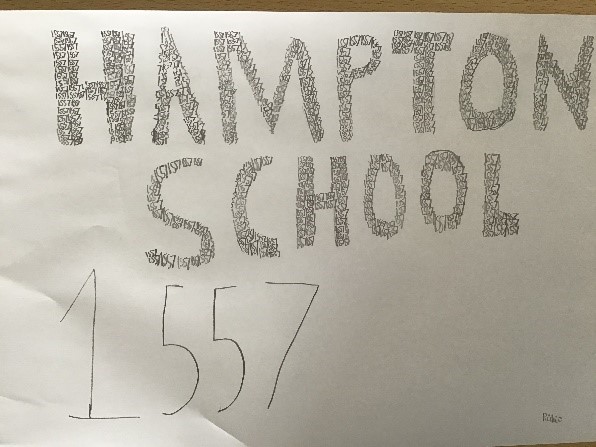 HAMPTON
SCHOOL
1557